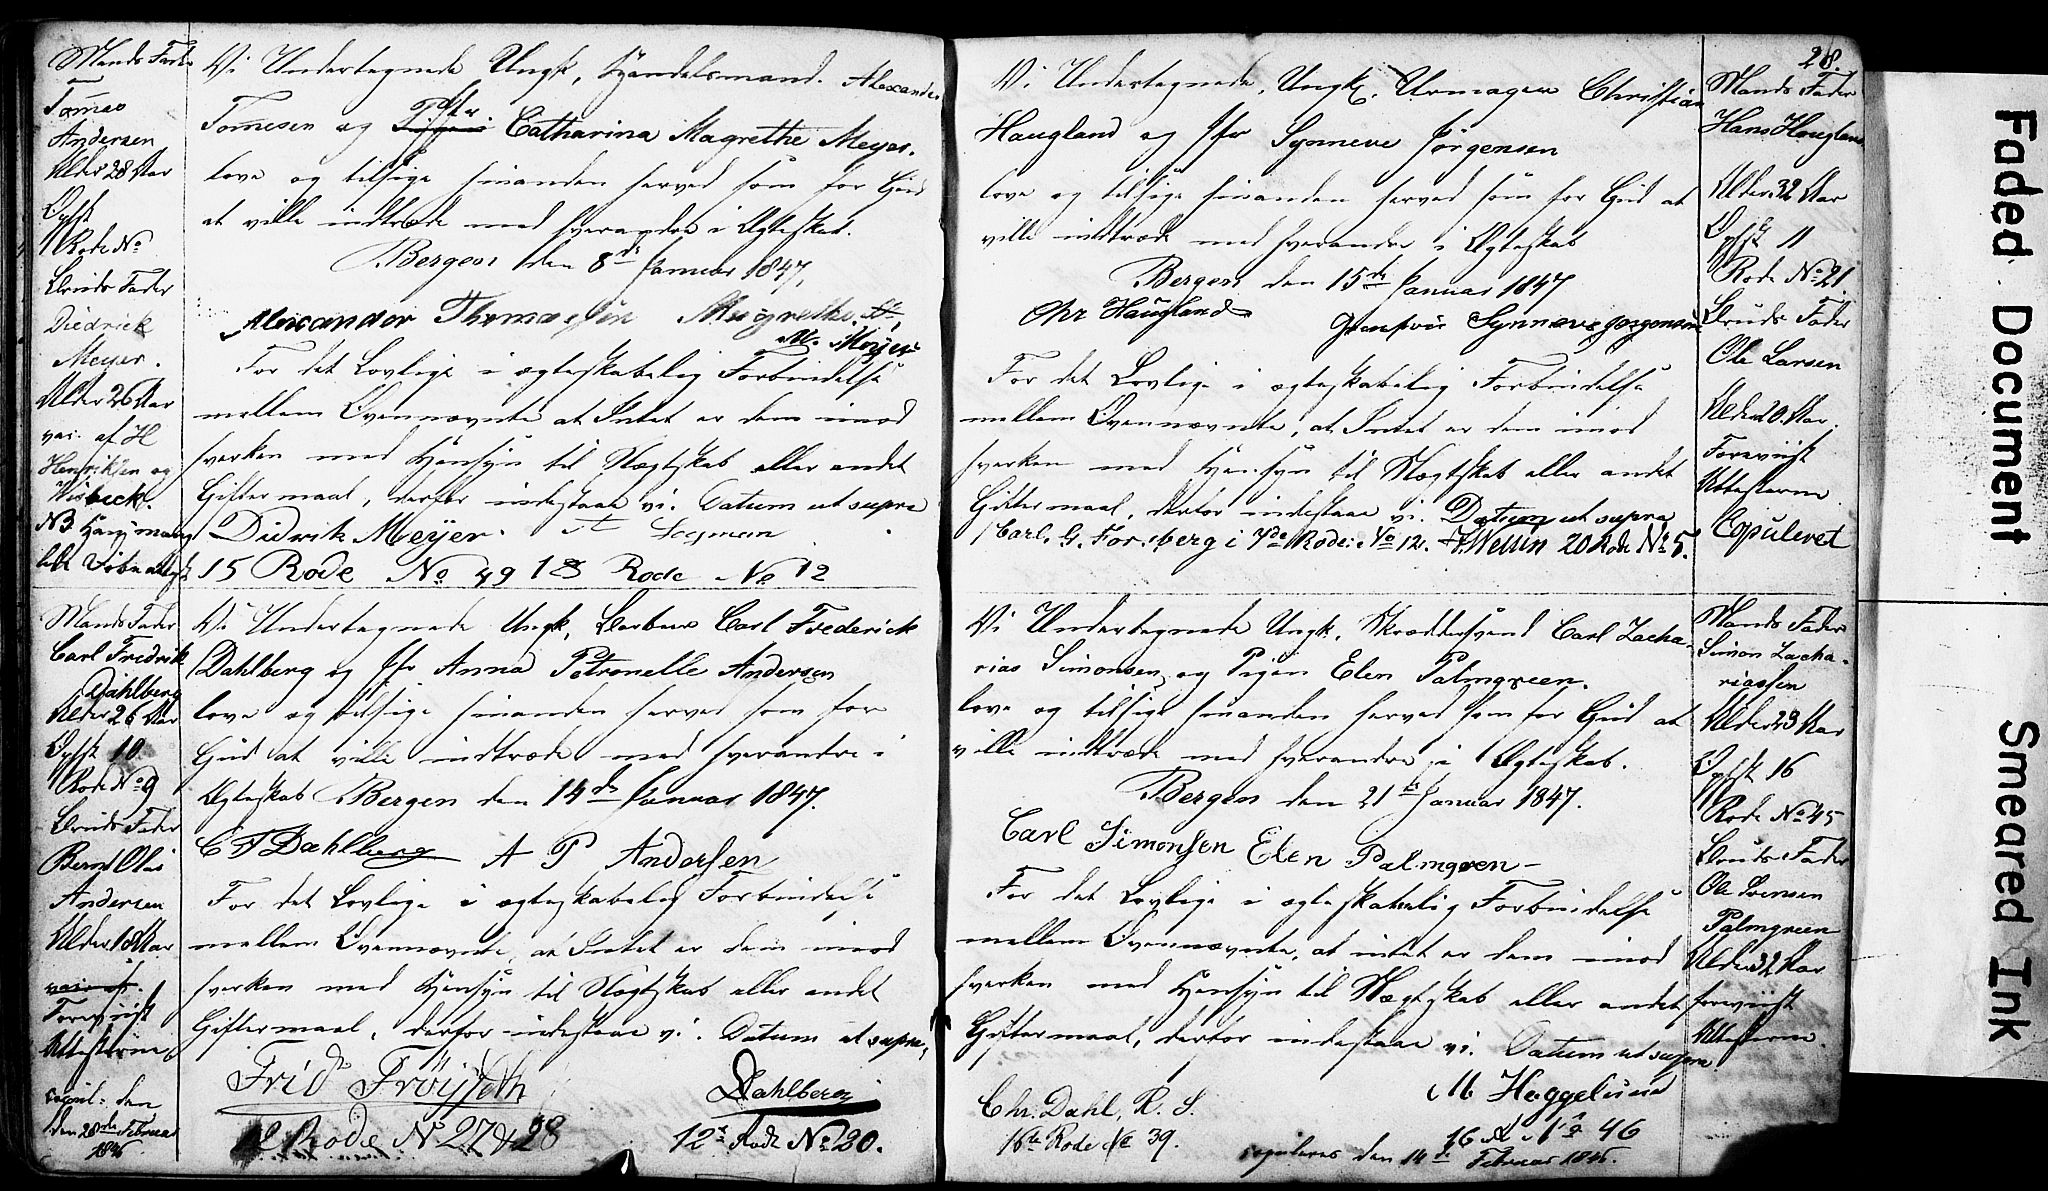 Mands Fader
Tomes
Andersen
Alder 28 Aar
Opfst
Rode No
Bruds Fader
Diedrick
Meyer.
Alder 26 Aar
vac. af H
Henriksen og
Wisbeck.
Vi Undertegnede Ungk, Handelsmand. Alexander
Tomesen og Pigen Jfr Catharina Magrethe Meyer.
love og tilsige hinanden herved som for Gud
at ville indtræde med hverandre i Ægteskab.
Bergen den 8de Januar 1847,
Alexander Thomassen Magrethe
M. Meyer
For det Lovlige i ægteskabelig Forbindelse
mellem Ovennævnte at Intet er dem imod
hverken med Hensyn til Slægtskab eller andet
Giftermaal, derfor indestaae vi. Datum ut supra
Didrik Meyer.
15 Rode No 49 18 Rode No 12
Mands Fader
Carl Fredrik
Dahlberg
Alder 26 Aar
Opfst 10.
Rode No 9
Bruds Fader
Bernt Olai
Andersen
Alder 18 Aar
Foreviist
Attesterne
copul: den
den 28de Februar
Vi Undertegnede Ungk, Barbeer Carl Frederick
Dahlberg og Jfr Anna Petronelle Andersen
love og tilsige hinanden herved som for
Gud at ville indtræde med hverandre i
Ægteskab Bergen den 14de Januar 1847.
C F Dahlberg A P Andersen
For det Lovlige i ægteskabelig Forbindelse
mellem Ovennævnte, at Intet er dem imod
hverken med Hensyn til Slægtskab eller andet
Giftermaal, derfor indestaae vi. Datum ut supra,
Frid Tröyseth Dahlberg
Rode No 27 & 28 12te Rode No 30.
28.
Vi Undertegnede, Ungk. Urmager Christian
Haugland og Jfr Synneve Jørgensen
love og tilsige hinanden herved som for Gud at
ville indtræde med hverandre i Ægteskab
Bergen den 15de Januar 1847
Chr Haugland Synneve Jorgensen
For det Lovlige i ægteskabelig Forbindelse
mellem Ovennævnte, at Intet er dem imod
hverken med Hensyn til Slægtskab eller andet
Giftermaal, derfor indestaae vi. Datum ut supra
Carl. G. Forsberg i 7de Rode: No 12. Wellin 20 Rode No 5.
Mands Fader
Hans Haugland
Alder 32 Aar
Opfst 11
Rode No 21.
Bruds Fader
Ole Larsen
Alder 20. Aar.
Foreviist
Attesterne
Copuleret
Vi Undertegnede Ungk. Skrædersvend Carl Zacha-
rias Simonsen og Pigen Elen Palmgreen.
love og tilsige hinanden herved som for Gud at
ville indtræde med hverandre i Ægteskab.
Bergen den 21de Januar 1847.
Carl Simonsen Elen Palmgren
For det Lovlige i ægteskabelig Forbindelse
mellem Ovennævnte, at intet er dem imod
hverken med Hensyn til Slægtskab eller andet
Giftermaal, derfor indestaae vi. Datum ut supra
M Haggelund
Chr. Dahl, R. S.
16de Rode No 39.
16 R No 46
copuleres den 14de Februar
Mands Fader
Simon Zacha-
riassen
Alder 23 Aar
Opfst 16
Rode No 45
Bruds Fader
Ole Svensen
Palmgreen
Alder 32 Aar
foreviist
Attesterne.
Faded Document
Smeared Ink